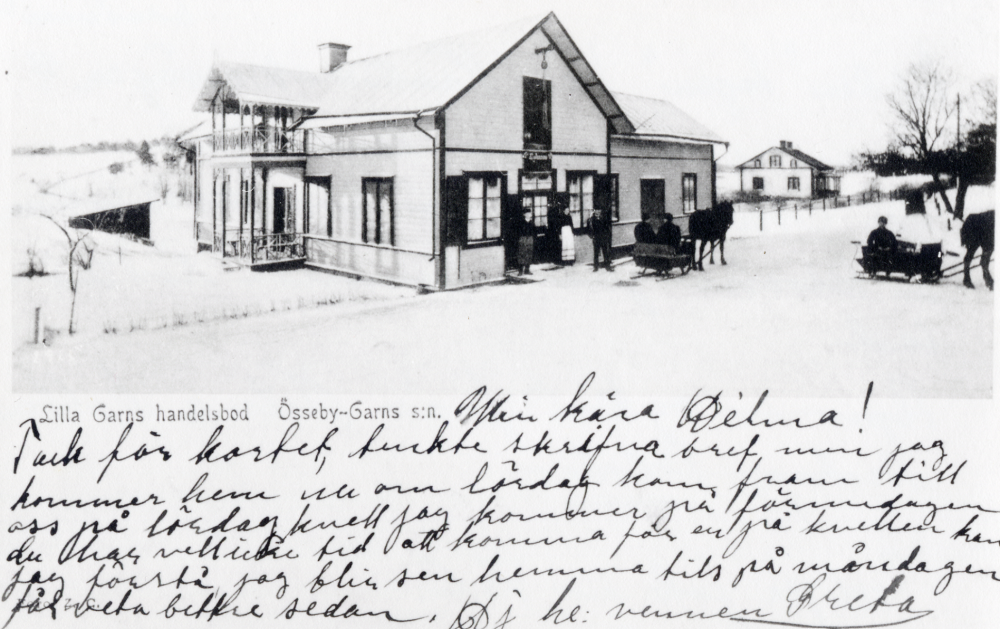 Lilla Garns handelsbod Össeby-Garns s:n. Min kära Delma!
Tack för kortet, tenkte skrifva bref, men jag
kommer hem nu om lördag kom fram till
oss på lördag kvell jag kommer på förmidagen
du har vell icke tid att komma för en på kvellen kan
jag förstå, jag blir sen hemma tils på måndagen
får veta bettre sedan. Dj he: vennen Greta